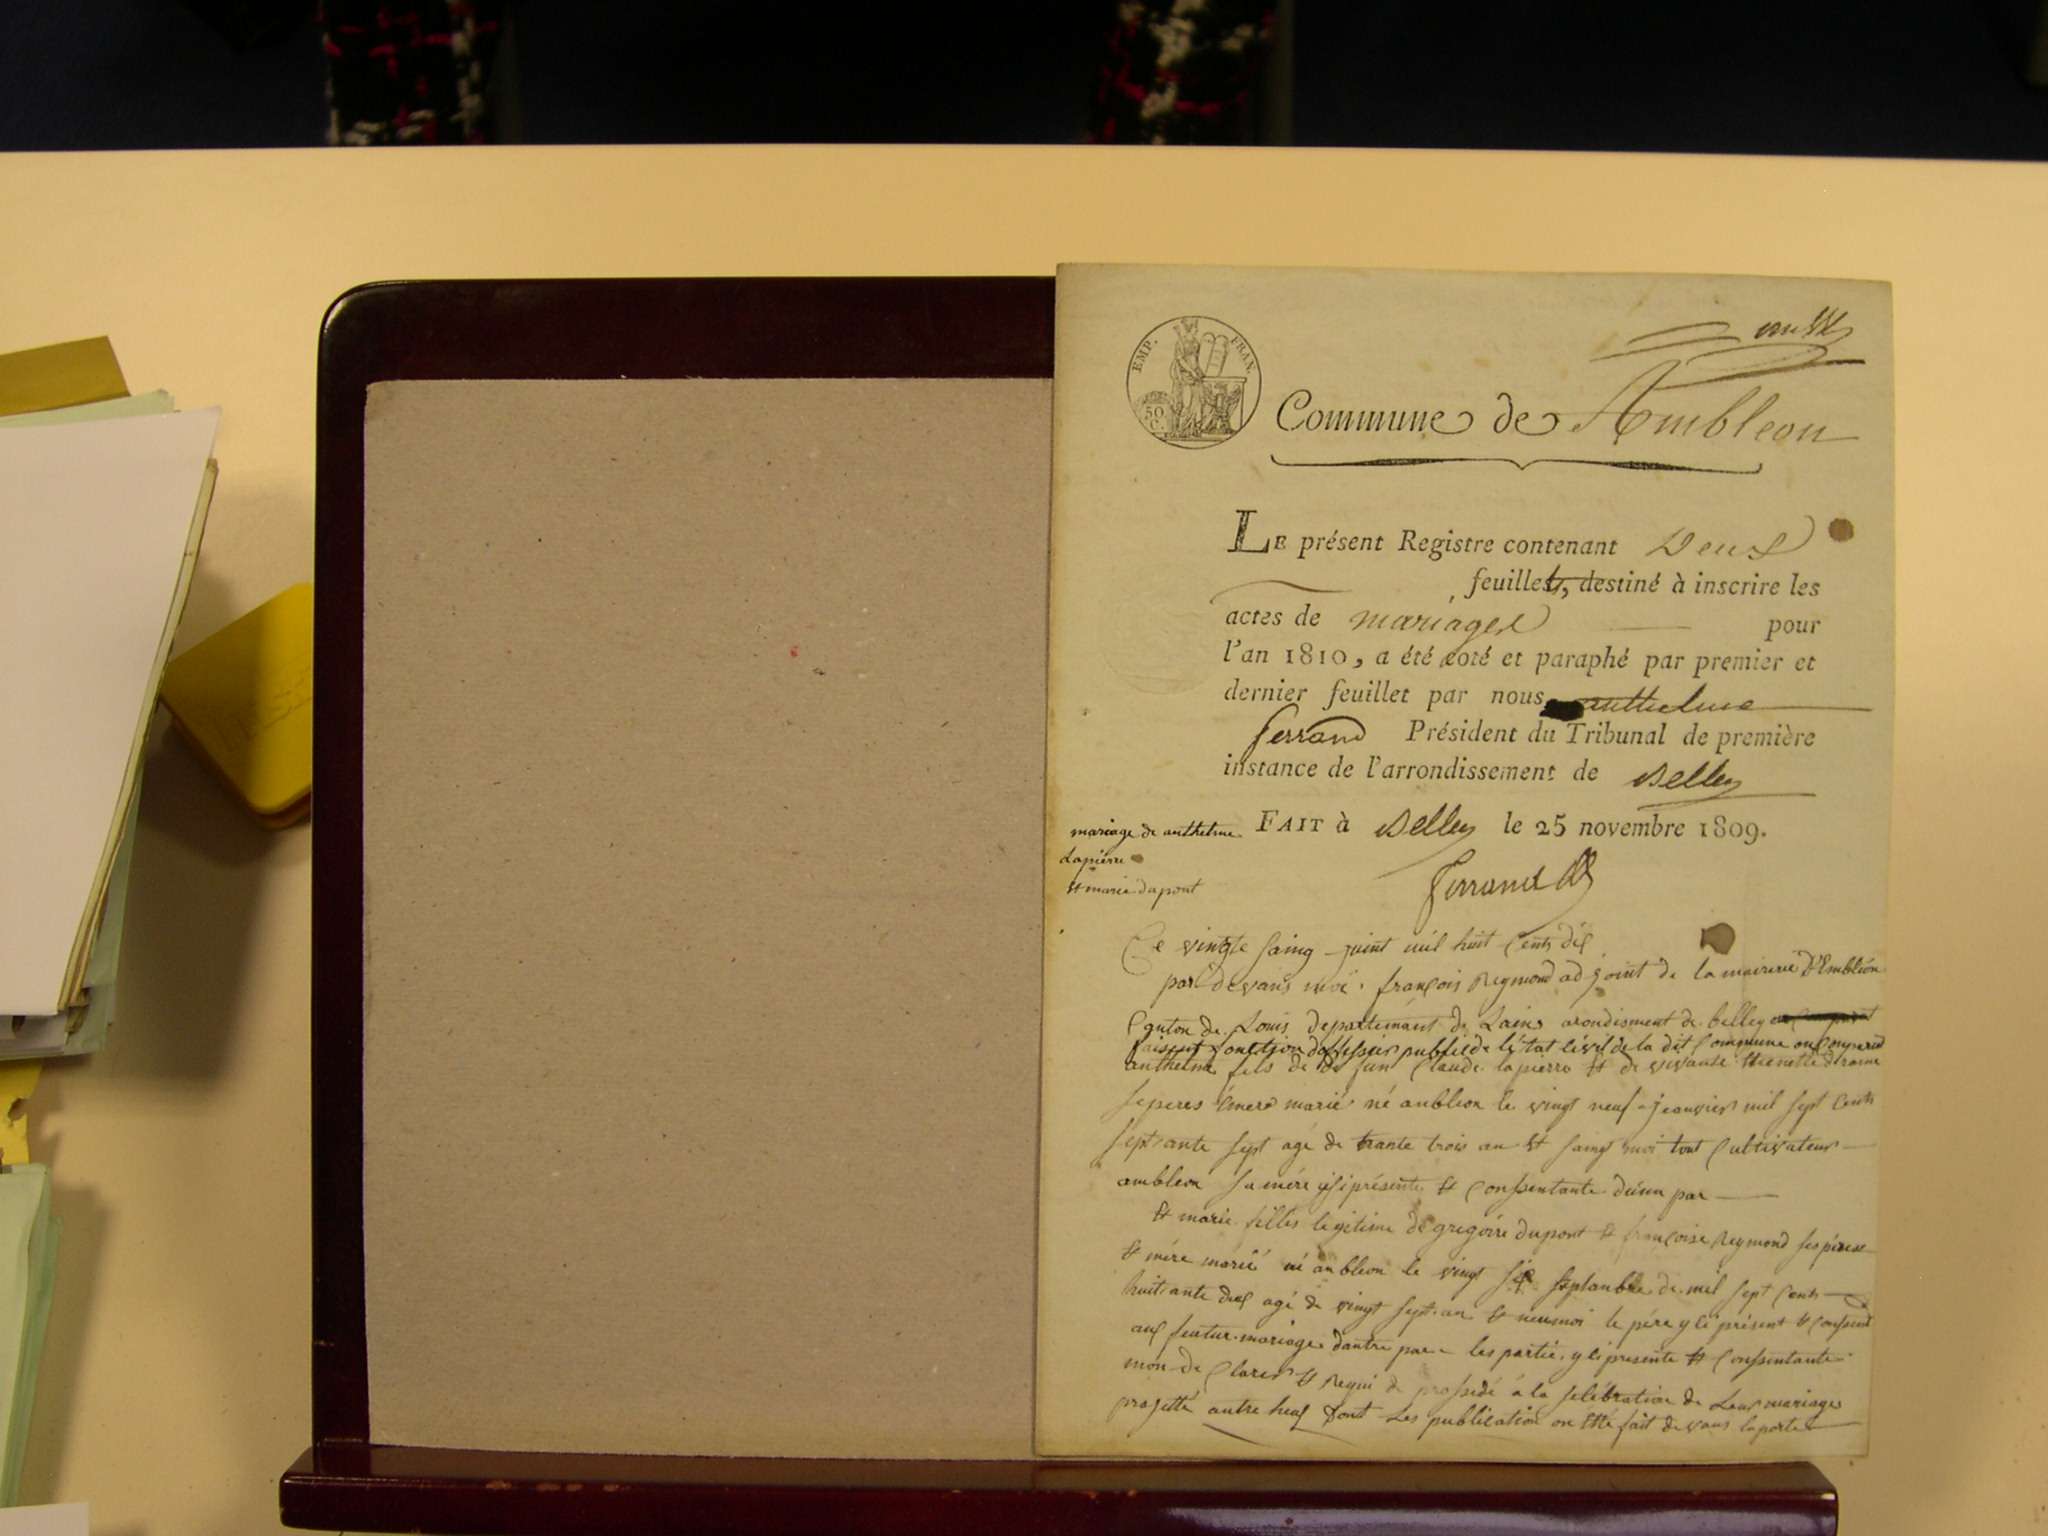 EMP. FRAN.
50 C.
Commune de Ambleon
LE présent Registre contenant Deux
feuillets, destiné à inscrire les
actes de mariages pour
l'an 1810, a été coté et paraphé par premier et
dernier feuillet par nous anthelme
ferrand Président du Tribunal de première
instance de l'arrondissement de Belley
FAIT à Belley le 25 novembre 1809.
ferrand
mariage de anthelme
Lapierre
et marie dupont
Ce vingte sainq juint mil huit Cents dix
par devans moi françois Reymond adjoint de la mairerie D'Embléon
Canton de Louis departement de Lains arondisment de belley
faisent fonction publicde l'état Civil de la dit Commune on Comparud
anthelme fils de Jean Claude lapierre et de vivante
se peres mere marié né anbleon le vingt neuf jeanvier mil sept Cents
septante sept agé de trante trois an et sainq moi tout Cultivateur
ambleon sa mére présente et Conssentante d'une par
et marie filles legitime de gregoire dupont et françoise Reymond ses péres
et mére marié né anbleon le vingt six septanbre de mil sept Cents
huitante deux agé de vingt sept an et neusmoi le pére y ci présent et Consent
aux feutur mariage dantre par les partié y ci presente et Conssentante
mon de Clarer et Requi de prossidé à la selébration de Leur mariage
projetté antre heux dont Les publication on été fait devans la porte